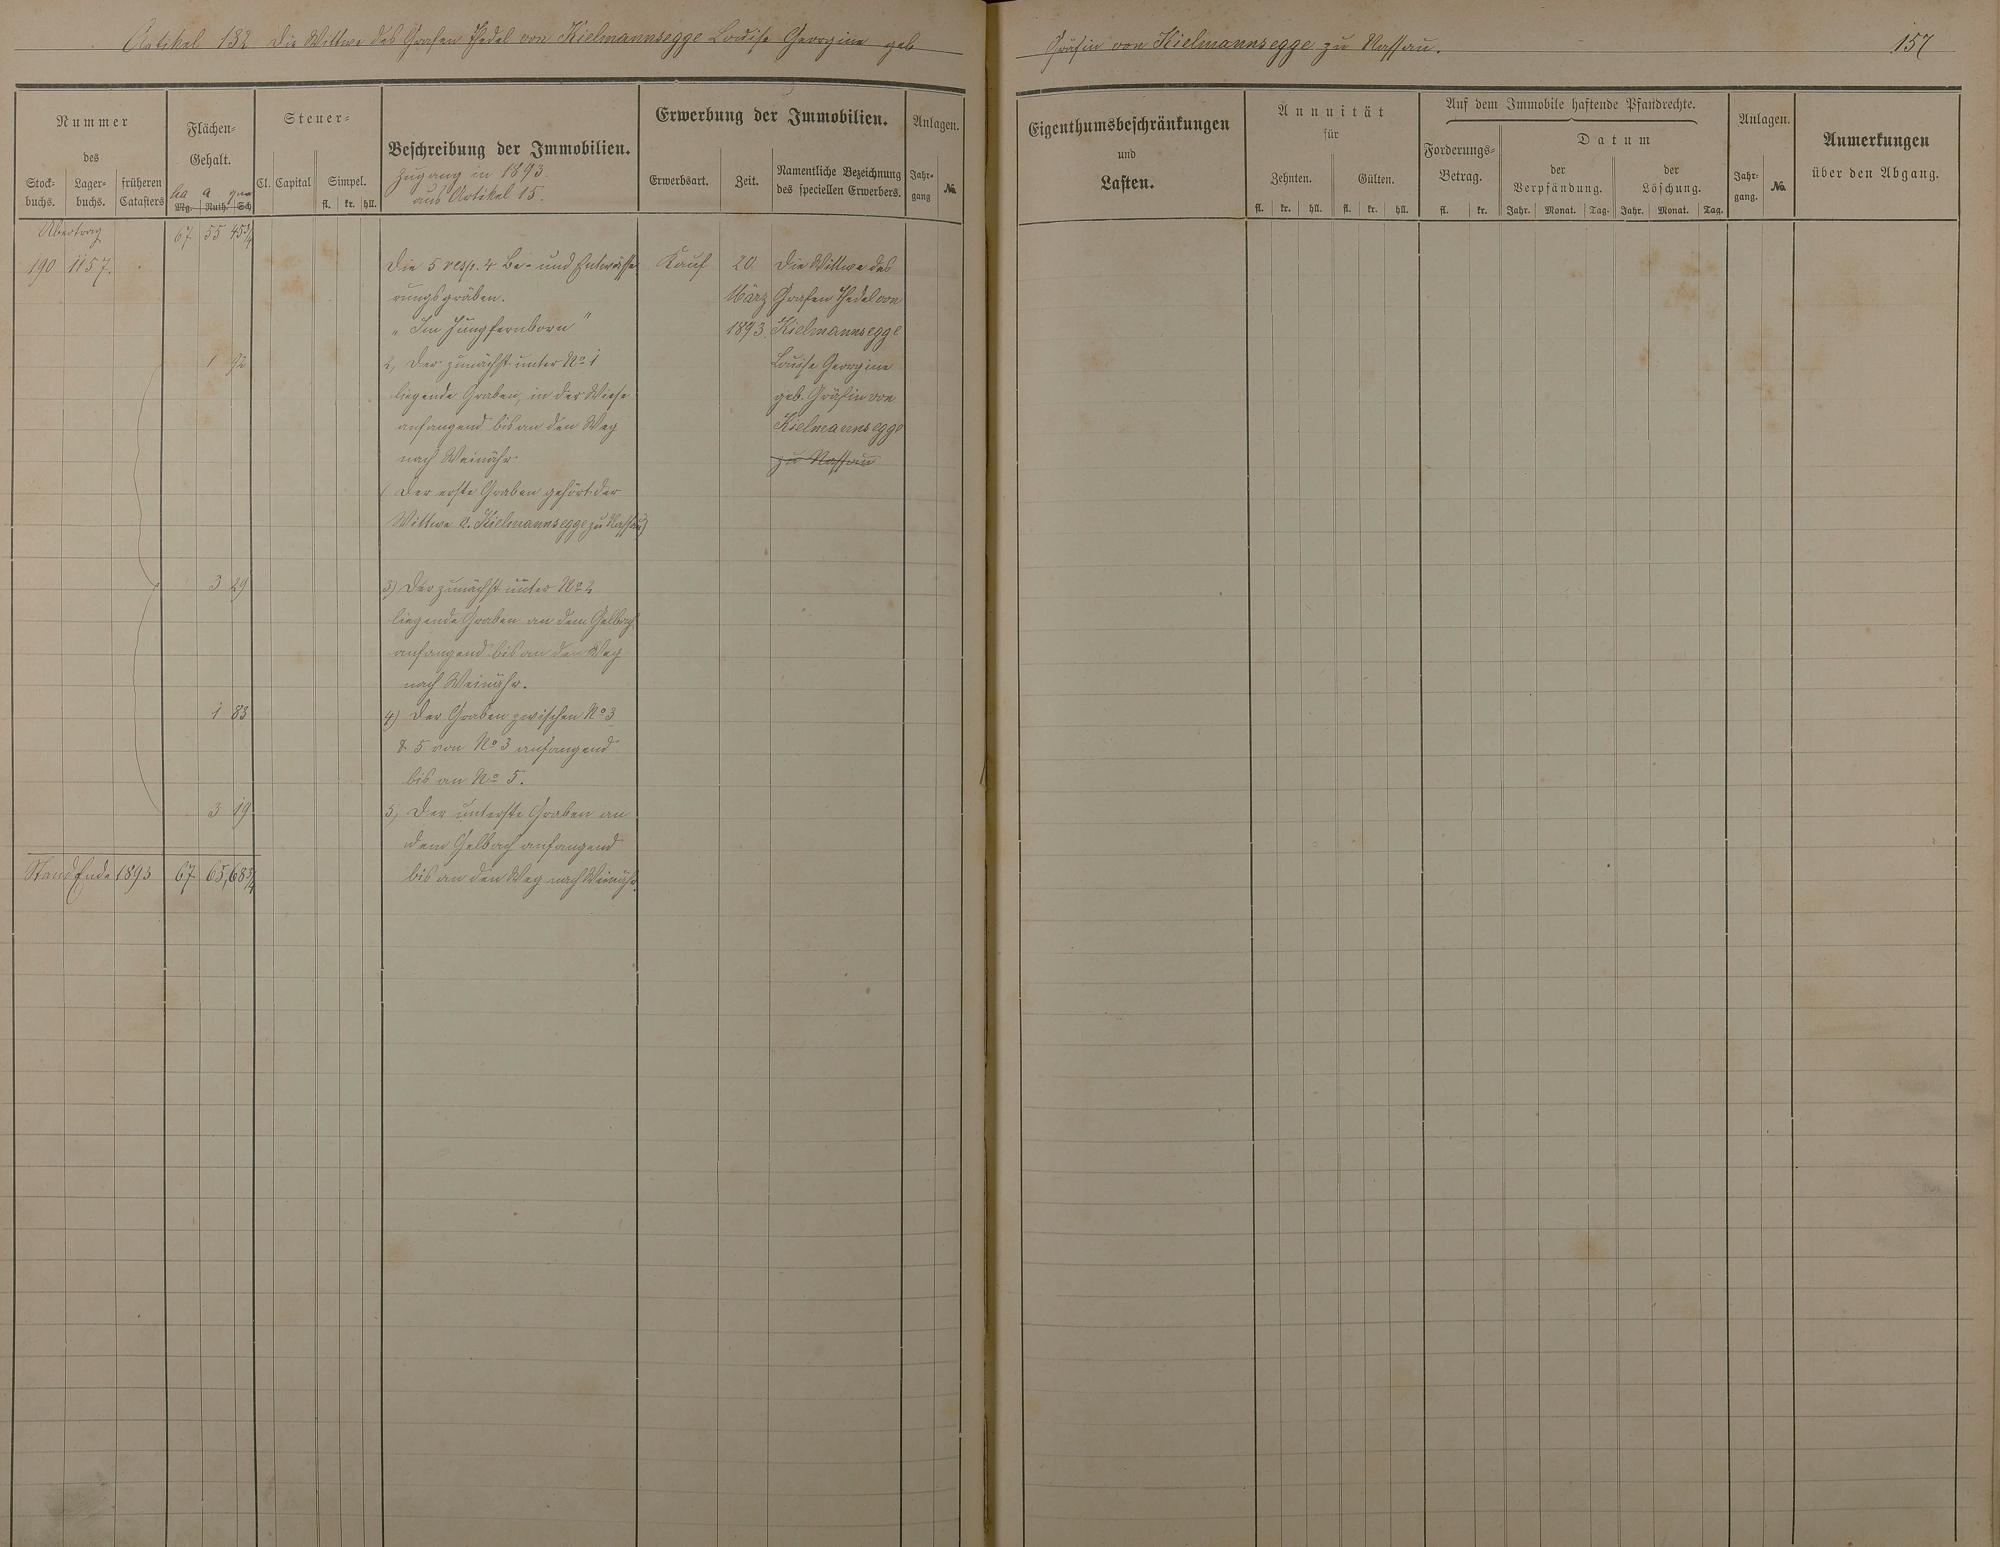 Artikel 132 Die Wittwe des Grafen Thedel von Kielmannsegge Louise Georgine geb
Gräfin von Kielmannsegge zu Nassau.
157
Nummer
des
Stock-
buchs.
Lager-
buchs.
früheren
Catasters
Flächen-
Gehalt.
ha a qm
Mg. Ruth. Sch
Steuer-
Cl. Capital Simpel.
fl. kr. hll.
Beschreibung der Immobilien.
Zugang in 1893.
aus Artikel 15.
Erwerbung der Immobilien.
Erwerbsart. Zeit.
Namentliche Bezeichnung
des speciellen Erwerbers.
Anlagen.
Jahr-
gang
No.
Eigenthumsbeschränkungen
und
Lasten.
Annuität
für
Zehnten. Gülten.
fl. kr. hll. fl. kr. hll.
Auf dem Immobile haftende Pfandrechte.
Forderungs-
Betrag.
fl. kr.
Datum
der
Verpfändung.
der
Löschung.
Jahr. Monat. Tag. Jahr. Monat. Tag.
Anlagen.
Jahr-
gang.
No.
Anmerkungen
über den Abgang.
Übertrag 67 55 45 3/4
190 1157. Die 5 resp. 4 Be- und Entwässe Kauf 20. Die Wittwe des
rungsgräben. März Grafen Thedel von
„Im Jungfernborn" 1893. Kielmannsegge
1 92 2, Der zunächst unter No 1 Louise Georgine
liegende Graben, in der Wiese geb. Gräfin von
anfangend bis an den Weg Kielmannsegge
nach Weinähr. zu Nassau
(Der erste Graben gehört der
Wittwe v. Kielmannsegge zu Nassau)
3 29 3) Der zunächst unter No 2
liegende Graben an dem Gelbach
anfangend bis an den Weg
nach Weinähr.
1 83 4) Der Graben zwischen No 3
& 5 von No 3 anfangend
bis an No 5.
3 19 5, Der unterste Graben an
dem Gelbach anfangend
Stand Ende 1893 67 65,68 3/4 bis an den Weg nach Weinähr.